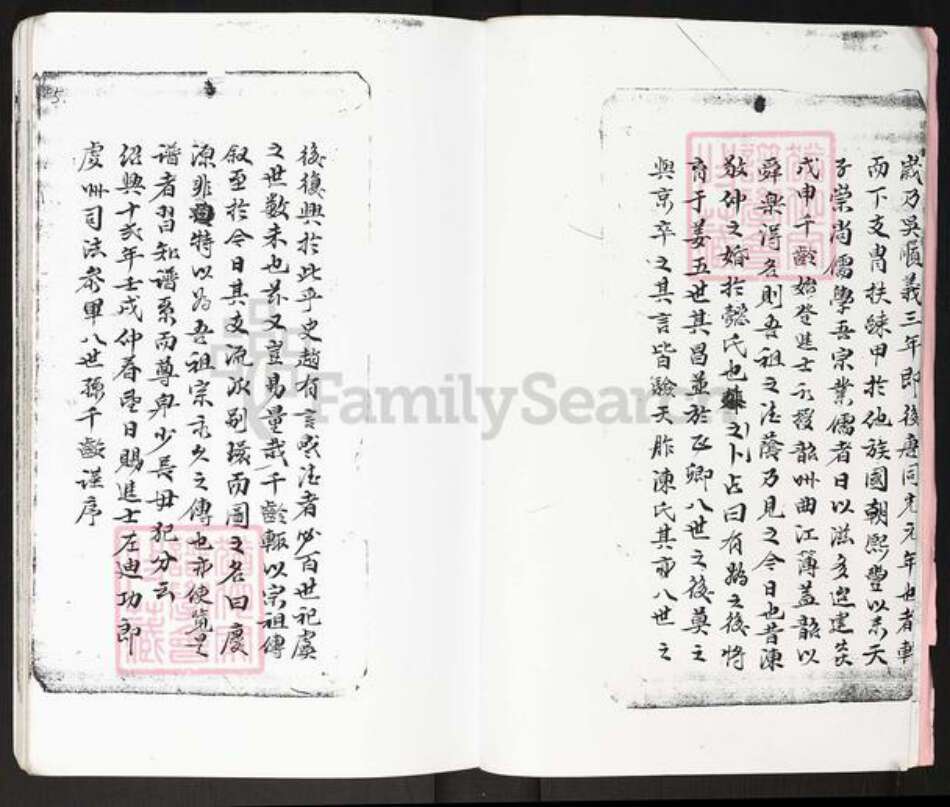 歲乃吳順義三年即後唐同光元年也者軒
而下支胄扶疎甲於他族國朝熙豐以来天
子崇尚儒學吾宗業儒者日以滋多迨建炎
戊申千齡始登進士示授韶州曲江簿蓋韶以
舜樂得名則吾祖之法蔭乃見之今日也昔陳
敬仲之婚於懿氏也之卜占曰有媯之後將
育于姜五世其昌並於正卿八世之後莫之
與京卒之其言皆驗天胙陳氏其亦八世之
後復興於此乎史趙有言盛德者必百世祀虞
之世數未也茲又豈易量哉千齡輙以宗祖傳
叙至於今日其支流派别環而圖之名曰慶
源非特以為吾祖宗永久之傳也亦使覧是
譜者習知譜系而尊卑少長毋犯分云
紹興十弍年壬戌仲春望日賜進士左迪功郎
虔州司法叅軍八世孫千齡謹序
FamilySearch